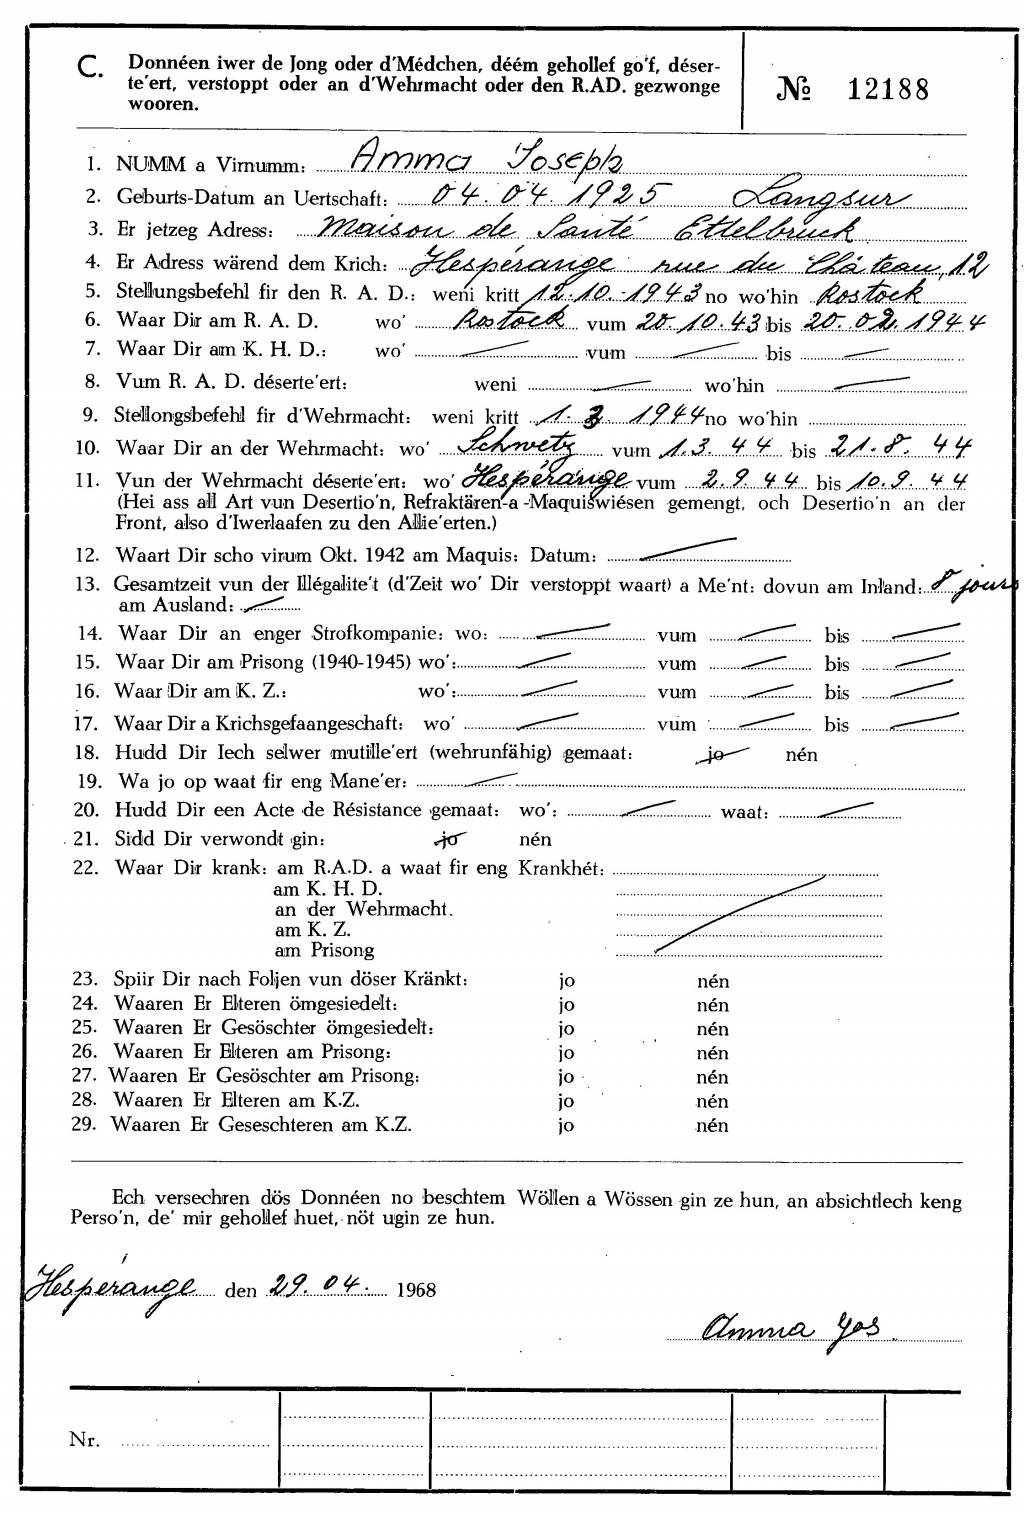 C. Donnéen iwer de Jong oder d'Médchen, déém gehollef go'f, déser-
te'ert, verstoppt oder an d'Wehrmacht oder den R.AD. gezwonge
wooren.
№ 12188
1. NUMM a Virnumm: Amma Joseph
2. Geburts-Datum an Uertschaft: 04.04.1925 Langsur
3. Er jetzeg Adress: Maison de Santé Ettelbruck
4. Er Adress wärend dem Krich: Hespérange rue du Château, 12
5. Stellungsbefehl fir den R. A. D.: weni kritt 12.10.-1943 no wo'hin Rostock
6. Waar Dir am R. A. D. wo' Rostock vum 20.10.43 bis 20.02.1944
7. Waar Dir am K. H. D.: wo' vum bis
8. Vum R. A. D. déserte'ert: weni wo'hin
9. Stellongsbefehl fir d'Wehrmacht: weni kritt 1. 3. 1944 no wo'hin
10. Waar Dir an der Wehrmacht: wo' Schwetz vum 1.3.44 bis 21.8.44
11. Vun der Wehrmacht déserte'ert: wo' Hespérange vum 2.9.44 bis 10.9.44
(Hei ass all Art vun Desertio'n, Refraktären-a -Maquiswiésen gemengt, och Desertio'n an der
Front, also d'Iwerlaafen zu den Allie'erten.)
12. Waart Dir scho virum Okt. 1942 am Maquis: Datum:
13. Gesamtzeit vun der Illégalite't (d'Zeit wo' Dir verstoppt waart) a Me'nt: dovun am Inland: 8 jours
am Ausland:
14. Waar Dir an enger Strofkompanie: wo: vum bis
15. Waar Dir am Prisong (1940-1945) wo': vum bis
16. Waar Dir am K. Z.: wo': vum bis
17. Waar Dir a Krichsgefaangeschaft: wo' vum bis
18. Hudd Dir Iech selwer mutille'ert (wehrunfähig) gemaat: jo nén
19. Wa jo op waat fir eng Mane'er:
20. Hudd Dir een Acte de Résistance gemaat: wo': waat:
21. Sidd Dir verwondt gin: jo nén
22. Waar Dir krank: am R.A.D. a waat fir eng Krankhét:
am K. H. D.
an der Wehrmacht.
am K. Z.
am Prisong
23. Spiir Dir nach Foljen vun döser Kränkt: jo nén
24. Waaren Er Elteren ömgesiedelt: jo nén
25. Waaren Er Gesöschter ömgesiedelt: jo nén
26. Waaren Er Elteren am Prisong: jo nén
27. Waaren Er Gesöschter am Prisong: jo nén
28. Waaren Er Elteren am K.Z. jo nén
29. Waaren Er Geseschteren am K.Z. jo nén
Ech versechren dös Donnéen no beschtem Wöllen a Wössen gin ze hun, an absichtlech keng
Perso'n, de' mir gehollef huet, nöt ugin ze hun.
Hespérange den 29.04. 1968
Amma Jos
Nr.